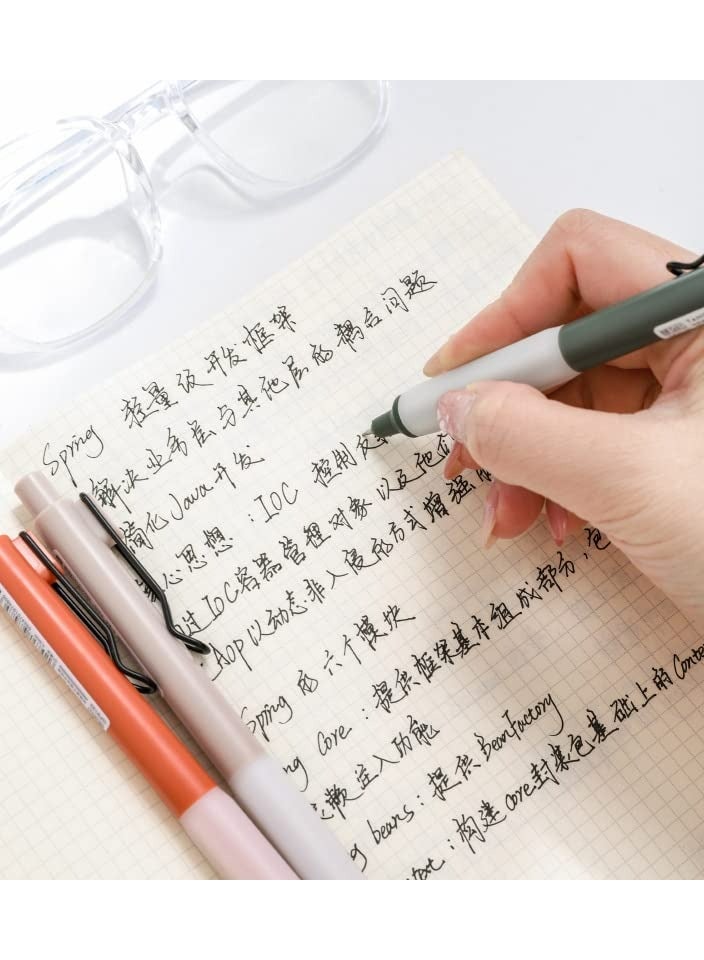 Spring 轻量级开发框架
解决业务层与其他层的耦合问题
简化Java开发
心思想：IOC 控制反
过IOC容器管理对象以及他们
AOP以动态非入侵的方式增强
Spring 的六个模块
ng Core：提供框架基本组成部分，包
依赖注入功能
g beans：提供BeanFactory
text：构建core封装包基础上的Conte